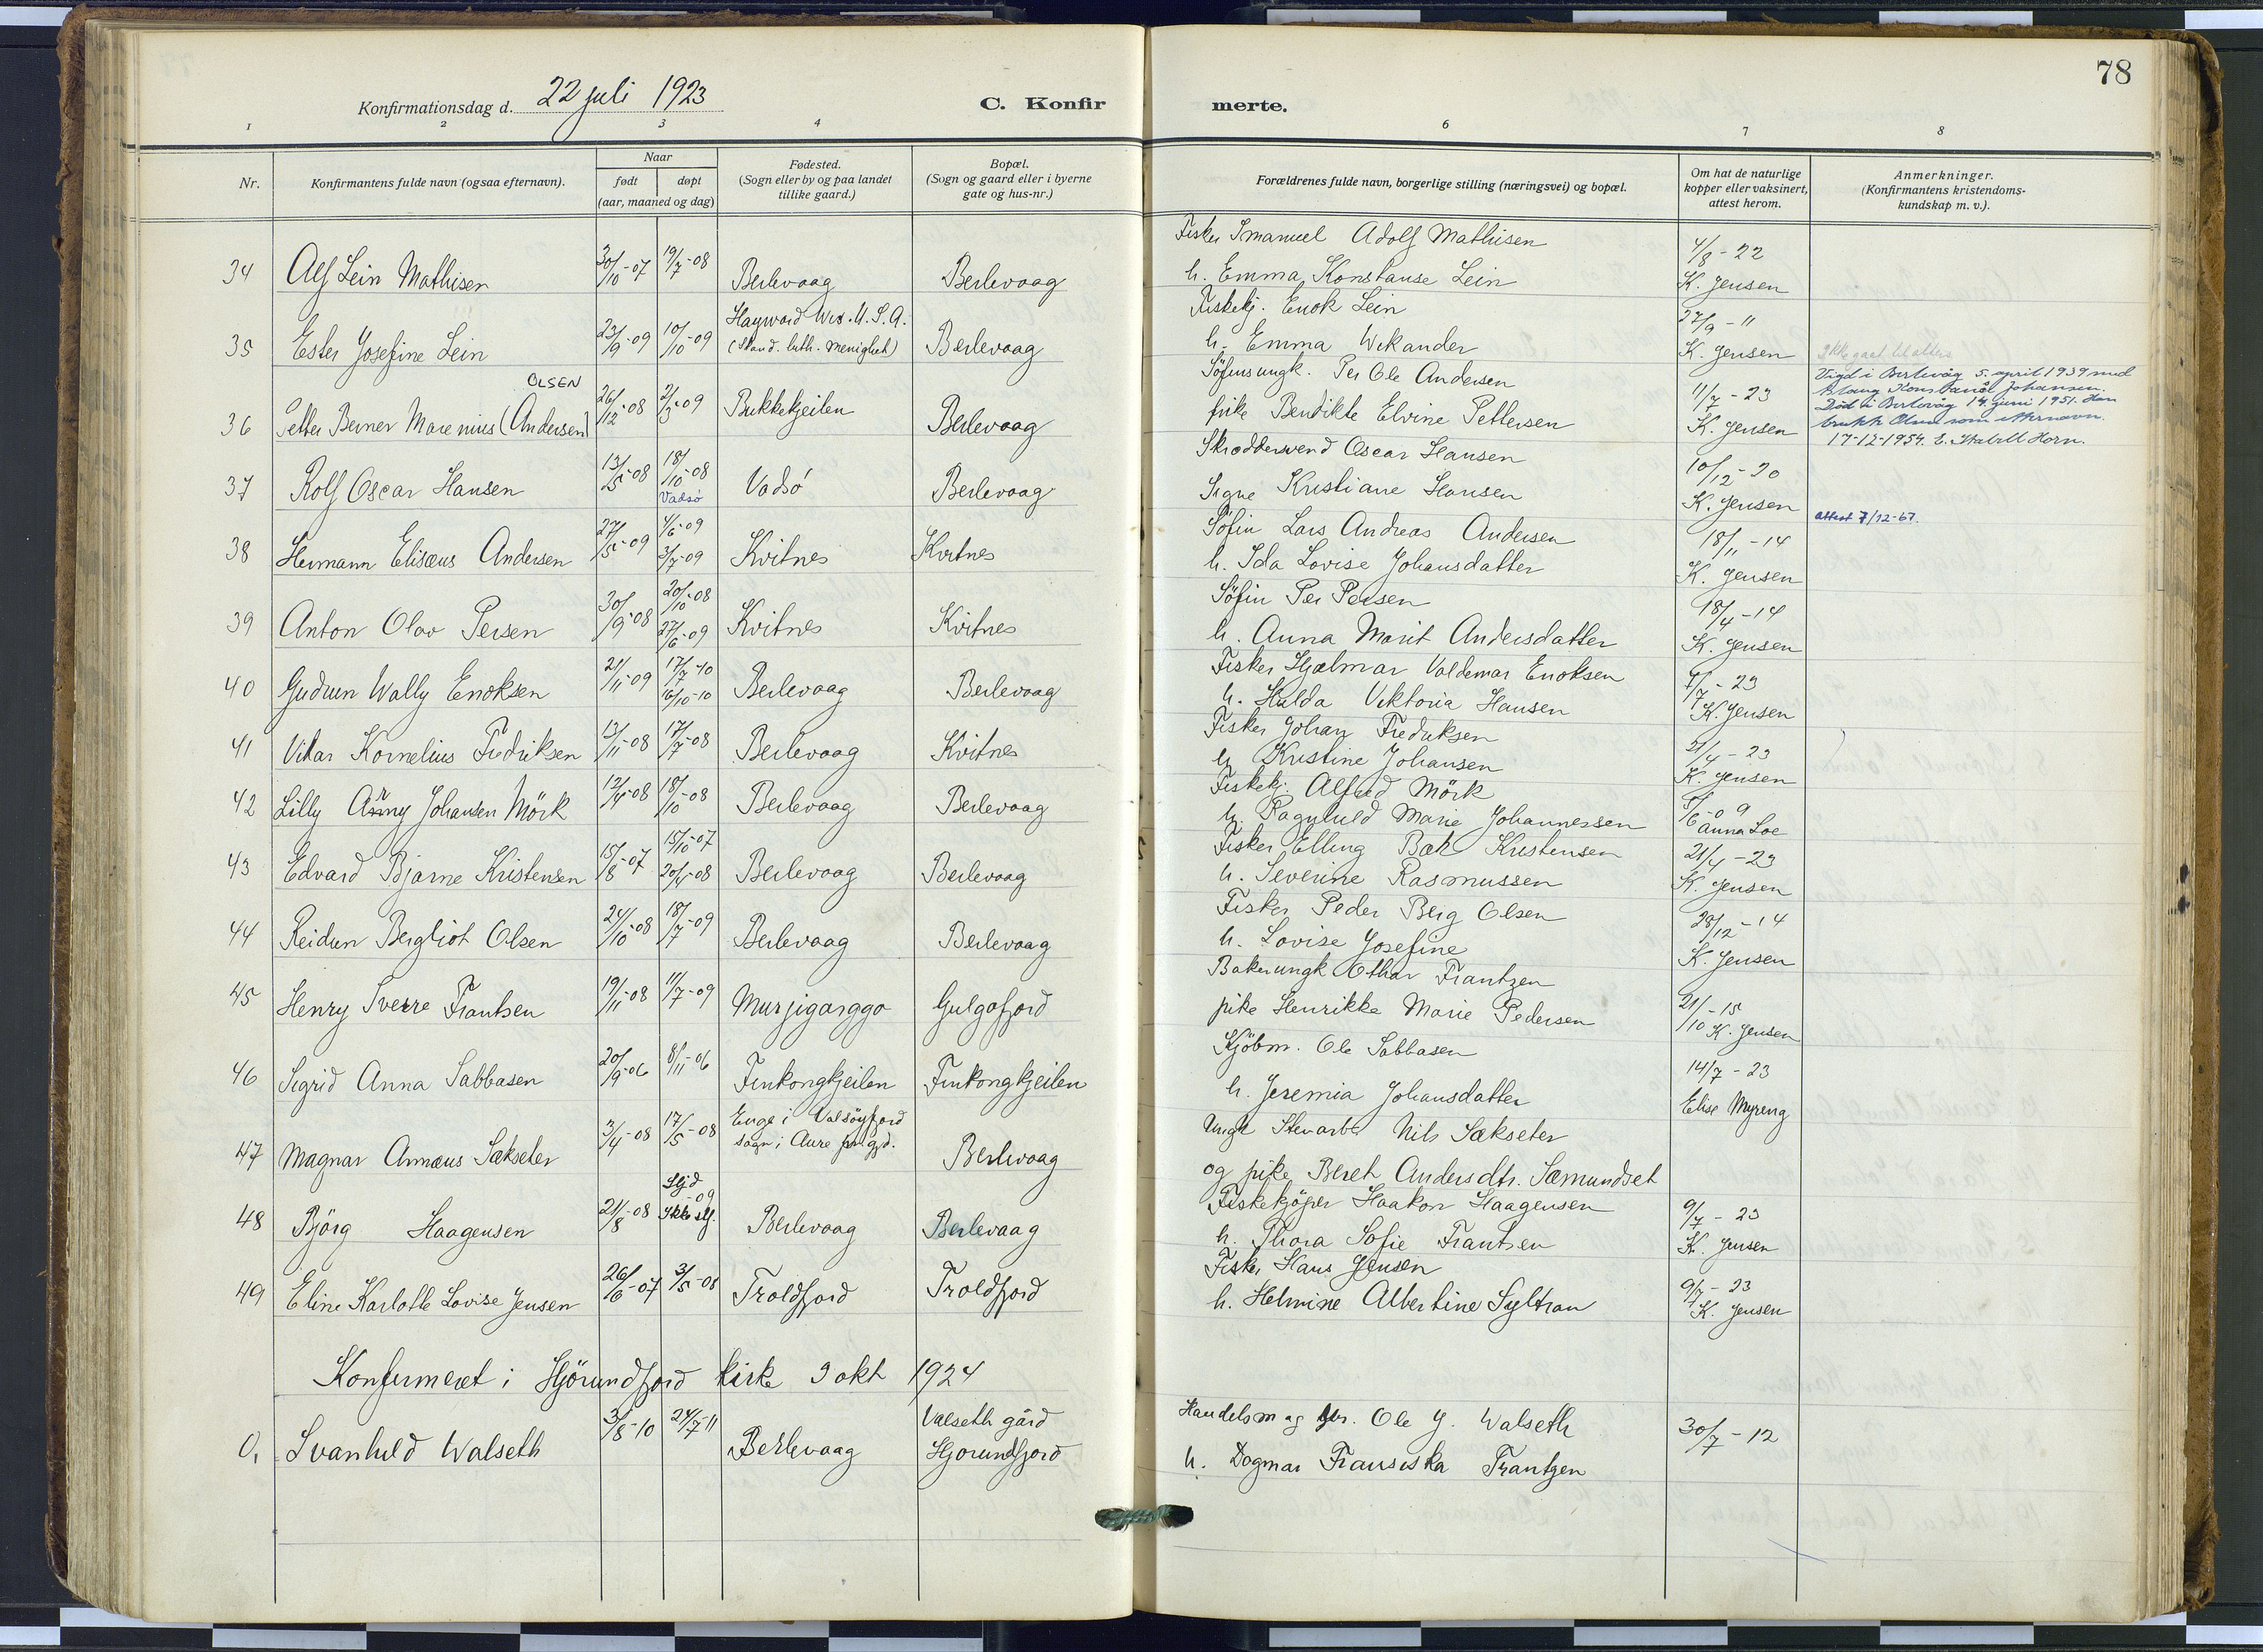 78
Konfirmationsdag d. 22 juli 1923 C. Konfirmerte.
1 2 3 4 6 7 8
Nr.
Konfirmantens fulde navn (ogsaa efternavn).
Naar
født døpt
(aar, maaned og dag)
Fødested.
(Sogn eller by og paa landet
tillike gaard.)
Bopæl.
(Sogn og gaard eller i byerne
gate og hus-nr.)
Forældrenes fulde navn, borgerlige stilling (næringsvei) og bopæl.
Om hat de naturlige
kopper eller vaksinert,
attest herom.
Anmerkninger.
(Konfirmantens kristendoms-
kundskap m. v.).
34 Alf Lein Mathisen 30/10-07 19/7-08 Berlevaag Berlevaag
Fisker Imanuel Adolf Mathisen
h. Emma Konstanse Lein
4/8-22
K. Jensen
35 Ester Josefine Lein 23/9-09 10/10-09 Hayward Wis. U.S.A.
(Skand. luth. menighet) Berlevaag
Fiskekj. Enok Lein
h. Emma Wikander
27/9-11
K. Jensen
Ikke gaat til alters
36 Petter Berner Marenius (Andersen) OLSEN 26/12-08 2/3-09 Bukkekjeilen Berlevaag
Söfinsungk. Per Ole Andersen
pike Bendikte Elvine Pettersen
11/7-23
K. Jensen
Vigd i Berlevåg 5. april 1939 med
Johansen.
Död i Berlevåg 14. juni 1951. Han
brukte Olsen som etternavn.
17-12-1954. E. Stabell Horn.
37 Rolf Oscar Hansen 13/5-08 18/10-08 Vadsø Vadsö Berlevaag
Skræddersvend Oscar Hansen
Signe Kristiane Hansen
10/12-20
K. Jensen
Attest 7/12-67.
38 Hermann Elisæus Andersen 27/5-09 4/6-09
3/7-09 Kvitnes Kvitnes
Söfin Lars Andreas Andersen
h. Ida Lovise Johansdatter
18/11-14
K. Jensen
39 Anton Olav Persen 30/9-08 20/10-08
27/6-09 Kvitnes Kvitnes
Söfin Per Persen
h. Anna Marit Andersdatter
18/4-14
K. Jensen
40 Gudrun Wally Enoksen 21/11-09 17/7-10
16/10-10 Berlevaag Berlevaag
Fisker Hjalmar Valdemar Enoksen
h. Hulda Viktoria Hansen
4/7-23
K. Jensen
41 Vikar Kornelius Fredriksen 13/11-08 17/7-08 Berlevaag Kvitnes
Fisker Johan Fredriksen
h. Kristine Johansen
21/4-23
K. Jensen
42 Lilly Anny Johansen Mörk 12/4-08 18/10-08 Berlevaag Berlevaag
Fiskekj. Alfred Mörk
h. Ragnhild Marie Johannessen
5/6-09
Anna Loe
43 Edvard Bjarne Kristensen 15/8-07 15/10-07
20/4-08 Berlevaag Berlevaag
Fisker Elling Bak Kristensen
h. Severine Rasmussen
21/4-23
K. Jensen
44 Reidun Bergliot Olsen 24/10-08 18/7-09 Berlevaag Berlevaag
Fisker Peder Berg Olsen
h. Lovise Josefine
28/12-14
K. Jensen
45 Henry Sverre Frantsen 19/11-08 11/7-09 Murjigarggo Gulgofjord
Bakerungk Othar Frantzen
pike Henrikke Marie Pedersen
21/10-15
K. Jensen
46 Sigrid Anna Sabbasen 20/9-06 8/11-06 Finkongkjeilen Finkongkjeilen
Kjöbm. Ole Sabbasen
h. Jeremia Johansdatter
14/7-23
Elise Myreng
47 Magnar Annæus Sækseter 3/4-08 17/5-08 Enge i Valsöyfjord
sogn i Aure prgjd. Berlevaag
Ungk Stenarb. Nils Sækseter
og pike Beret Andersdtr. Sæmundset
48 Björg Haagensen 21/8-08 Hjd
-09
Berlevaag Berlevaag
Fiskekjöper Haakon Haagensen
h. Thora Sofie Frantsen
9/7-23
K. Jensen
49 Eline Karlotte Lovise Jensen 26/6-07 3/5-08 Troldfjord Troldfjord
Fisker Hans Jensen
h. Helmine Albertine Syltran
9/7-23
K. Jensen
Konfirmeret i Hjörundfjord kirke 9 okt 1924
0, Svanhild Walseth 3/8-10 24/7-11 Berlevaag Valseth gård
Hjorundfjord
Handelsm og gbr. Ole J. Walseth
h. Dagmar Fransiska Frantzen
30/7-12